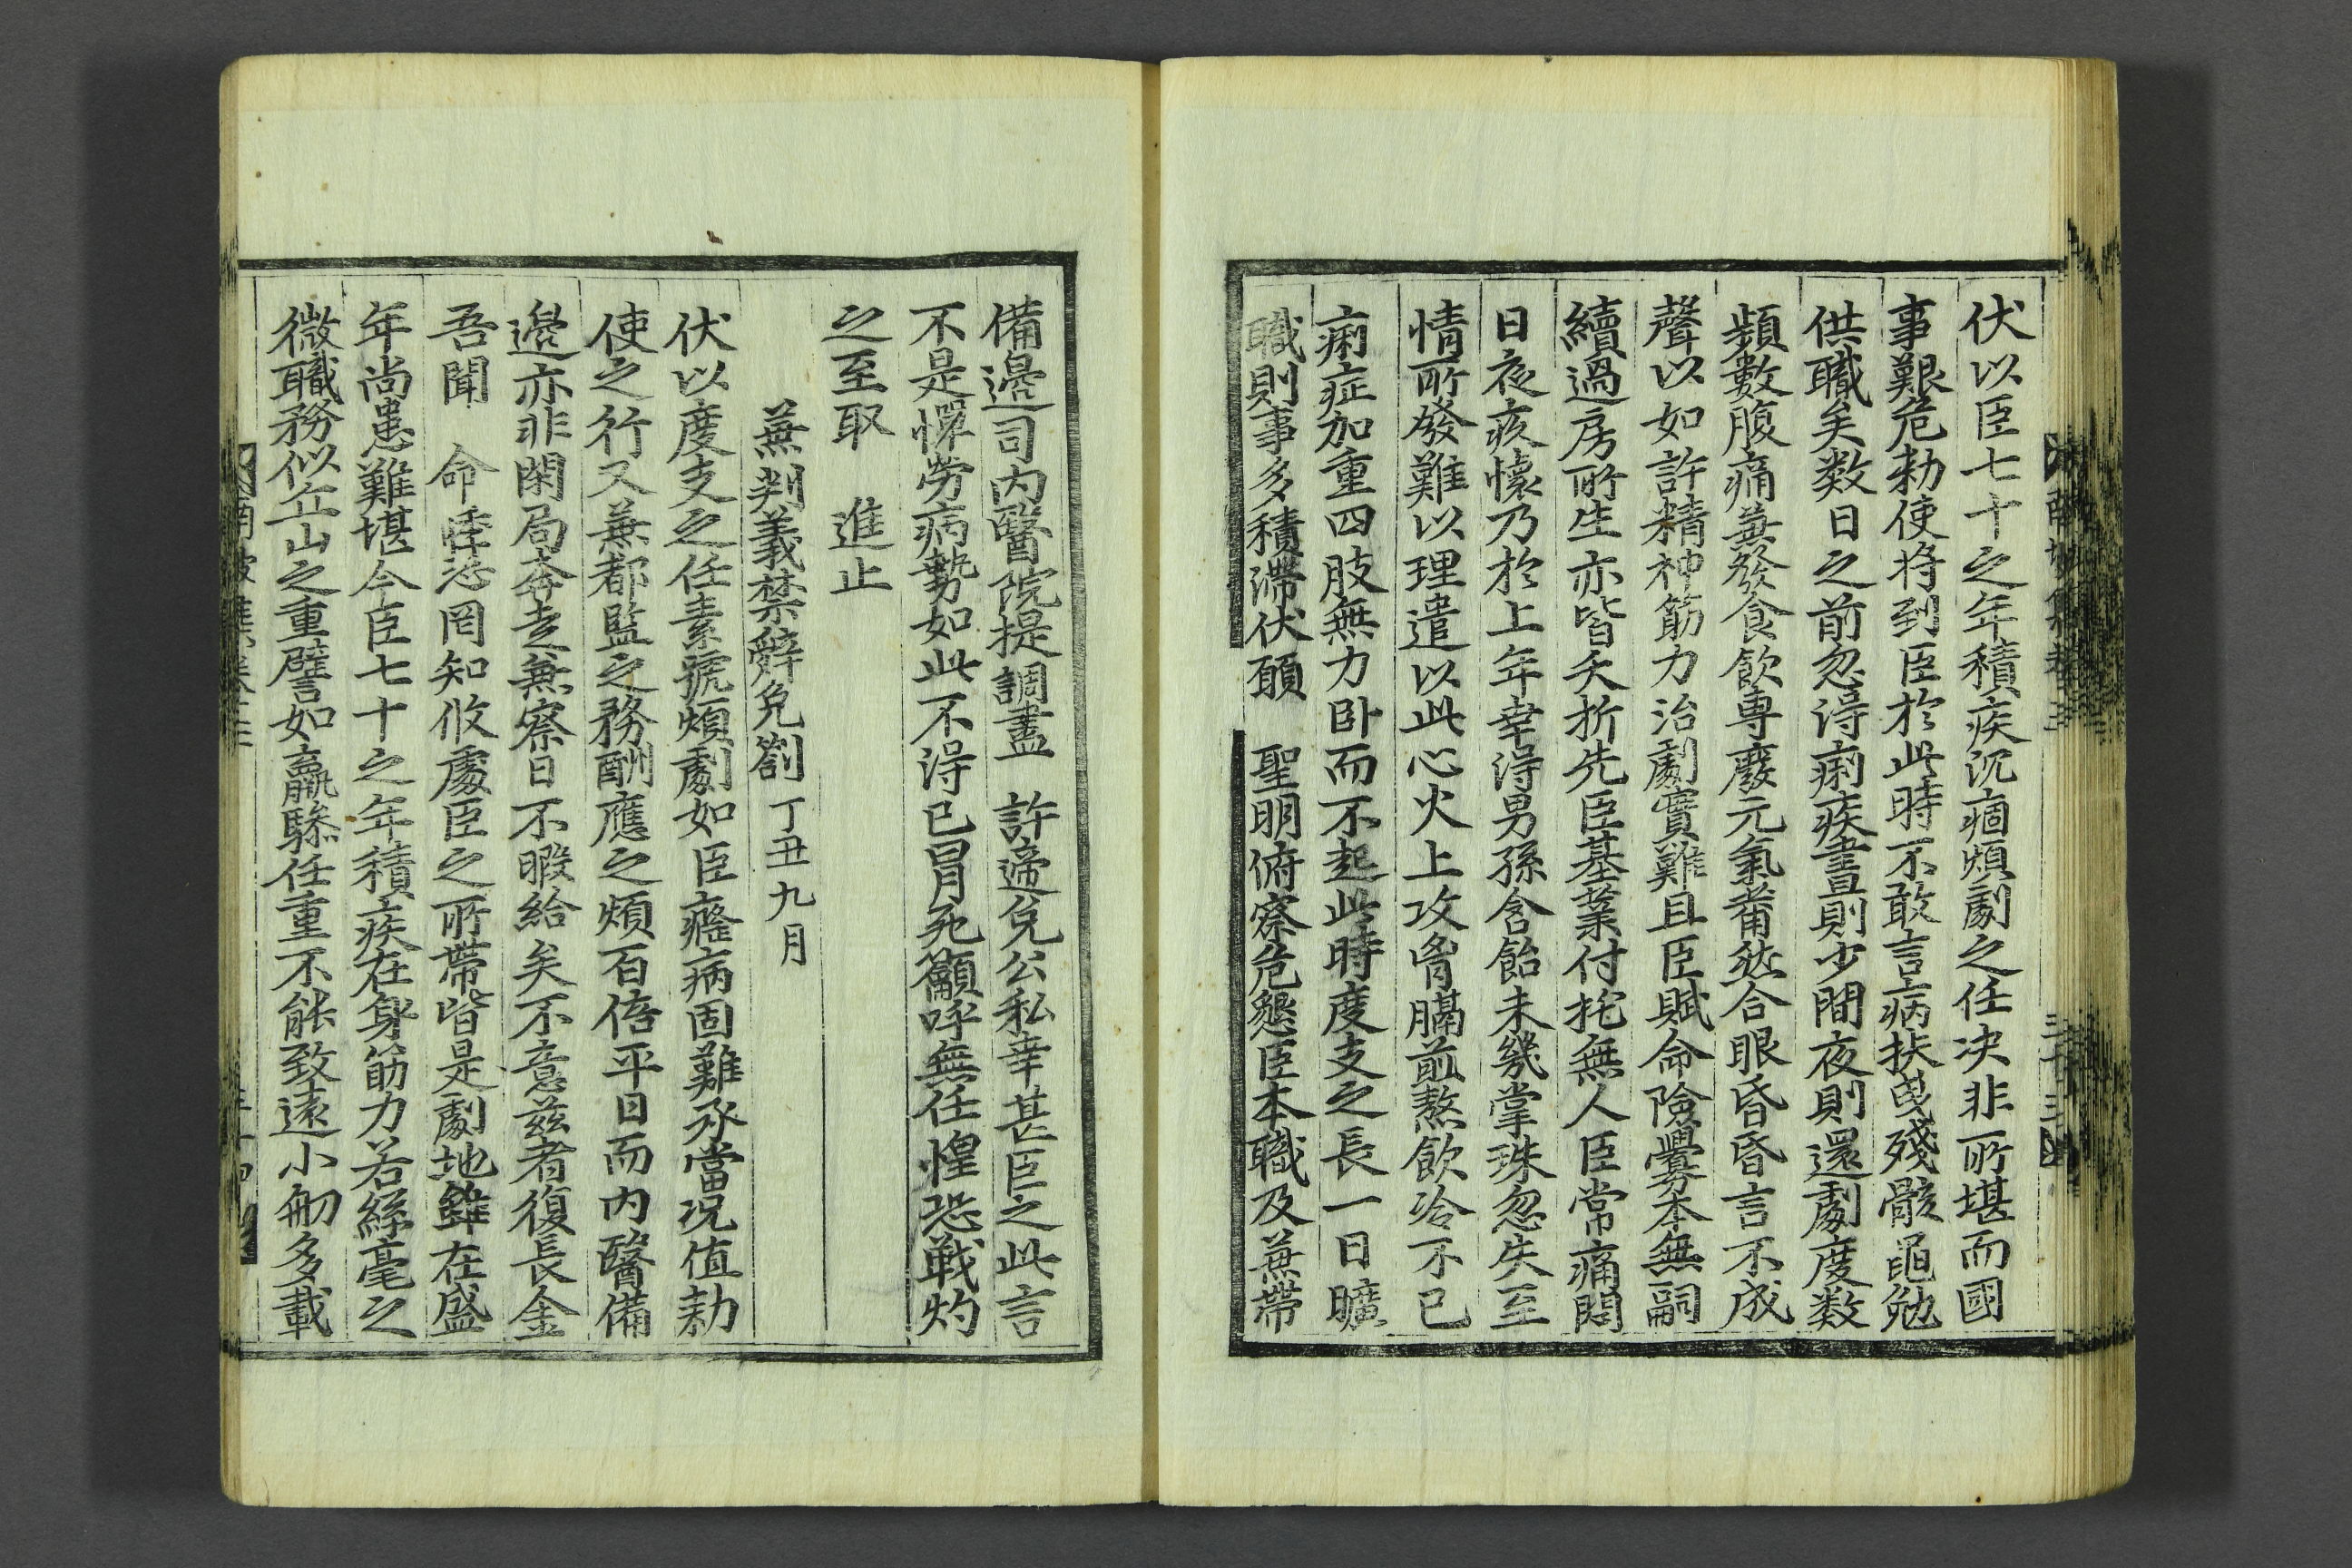 伏以臣七十之年積疾沉痼煩劇之任决非所堪而國
事艱危勅使将到臣於此時不敢言病扶曳殘骸黽勉
供職矣数日之前忽淂痢疾晝則少間夜則還劇度数
頻數腹痛兼發食飮專廢元氣薾然合眼昏昏言不成
聲以如許精神筋力治劇實難且臣賦命險釁本無嗣
續過房所生亦皆夭折先臣基業付托無人臣常痛悶
日夜疚懷乃於上年幸淂男孫含飴未幾掌珠忽失至
情所發難以理遣以此心火上攻胷膈煎熬飮冷不已
痢症加重四肢無力卧而不起此時度支之長一日曠
職則事多積滯伏願　聖明俯察危懇臣本職及兼帶
備邊司内醫院提調盡　許遞免公私幸甚臣之此言
不是憚勞病勢如此不淂已冒死籲呼無任惶恐戦灼
之至取　進止
兼判義禁辭免劄丁丑九月
伏以度支之任素號煩劇如臣癃病固難承當况值勅
使之行又兼都監之務酬應之煩百倍平日而内醫備
邊亦非閑局奔走兼察日不暇給矣不意兹者復長金
吾聞　命悸恐罔知攸處臣之所帶皆是劇地雖在盛
年尚患難堪今臣七十之年積疾在身筋力若絲毫之
微職務似丘山之重譬如羸驂任重不能致遠小舠多載